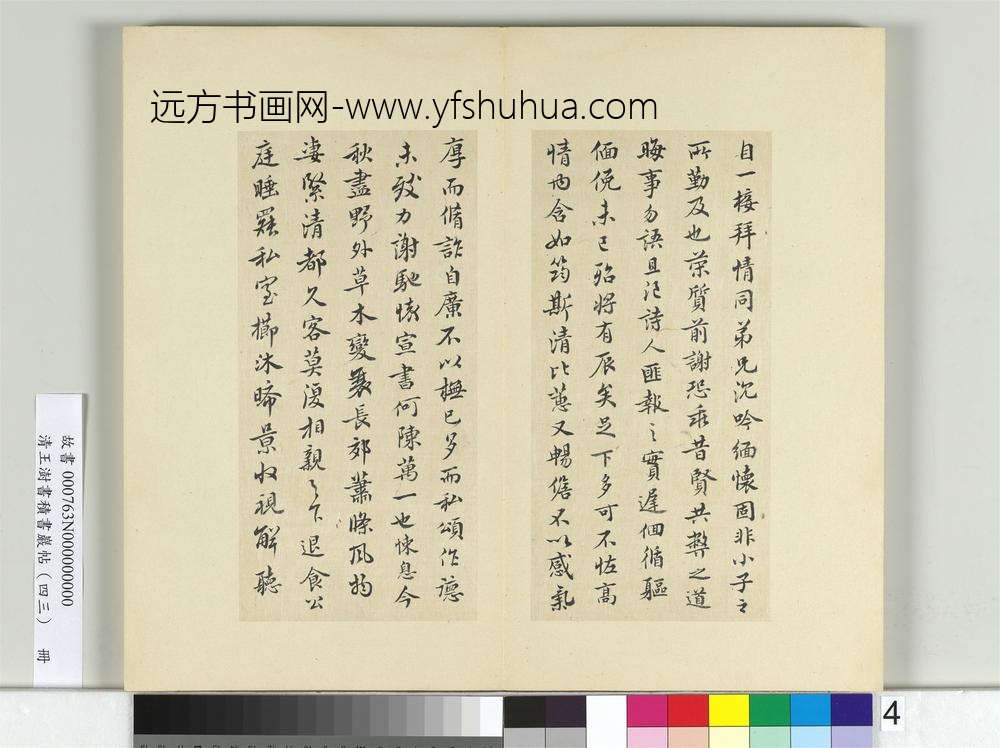 远方书画网-www.yfshuhua.com
自一接拜情同弟兄沉吟緬懷固非小子々
所勤及也荣質前謝恐乖昔賢共弊之道
晦事勿語且氾詩人匪報之實遲徊循軀
僶俛未已貽將有辰矣足下多可不恡高
情內含如筠斯清比蕙又暢儋不以感氣
厚而脩詐自廉不以橅已多而私頌作德
未致力謝馳懷宣書何陳萬一也悚息今
秋盡野外草木變衰長郊蕭條風物
凄緊清都久客莫復相親足下退食公
庭睡寤私室櫛沐晞景收視解聽
故書 000763N000000000
清王澍書積書巖帖（四三） 冊
4